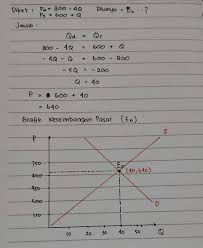 Diket : Pd = 800 - 4Q Ditanya = Eo ..?
Ps = 600 + Q
Jawab :
Qd = Qs
800 - 4Q = 600 + Q
-4Q - Q = 600 - 800
-5Q = -200
Q = 40
P = 600 + 40
= 640
Grafik Keseimbangan Pasar (Eo)
P
S
Eo
(40,640)
D
10 20 30 40 50 Q